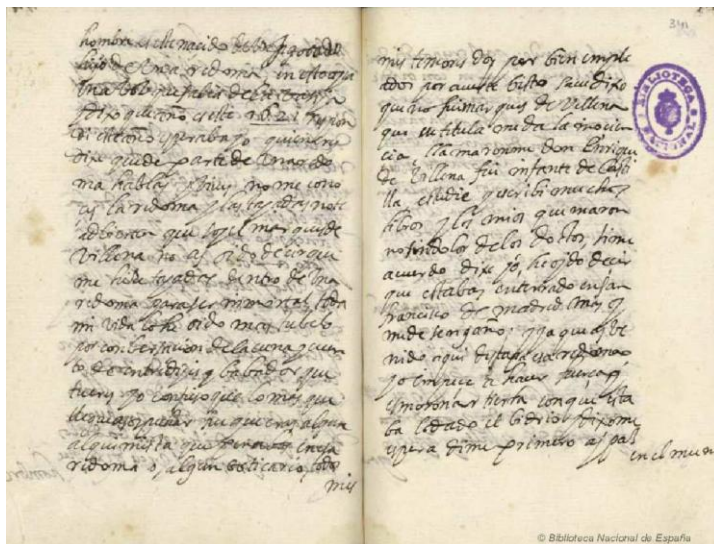 hombre
hijo de una redoma, en esto oya
una vos
dixo que año es este 1621
este año esperaba yo quien eres
dixe que de parte de una redo
ma hablas y vives no me cono
es la redoma y las tajadas no te
advierten que soy el marques de
Villena no as oido decir que
me hice tajadas dentro de una
redoma para ser inmortal, toda
mi vida lo he oido
por conbersacion de la cuna y cuen
to de entre dijes y babador que
tu eres yo confieso que lo mas que
llegue a sospechar fue que eras algun
alquimista que en esa
redoma o, algun boticario, todos
mis
mis temores doy por bien emple
ados por averte bisto
que no fui marques de Villena
que ese titulo me da la inocen
cia, llamaronme don Enrique
de Villena fui infante de Casti
lla estudie y escribi muchos
libros y los mios quemaron
no sin dolor de los doctos, si me
acuerdo dixe yo, he oydo decir
que estabas enterrado en san
francisco de madrid mas oy
me desengaño: ya que as be
nido aqui destapa esa redoma
yo empece a hacer fuerça y
desmoronar tierra con que esta
ba lodado el bidrio, dixome
espera dime primero ay paz
en el mun
341
BIBLIOTECA
© Biblioteca Nacional de España